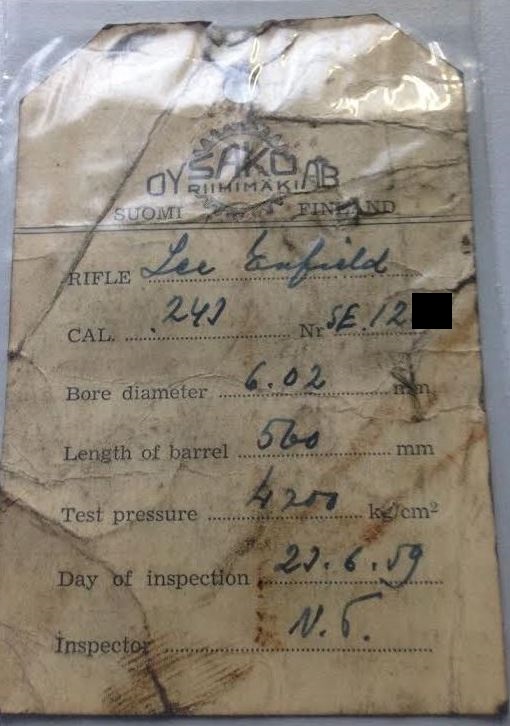 SAKO
OY RIIHIMÄKI AB
SUOMI FINLAND
RIFLE Lee Enfield
CAL. .243 Nr SE.12
Bore diameter 6.02 mm
Length of barrel 560 mm
Test pressure 4200 kg/cm²
Day of inspection 23.6.59
Inspector